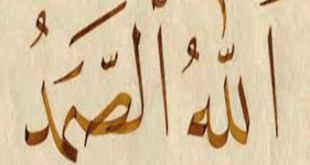 اَللّٰهُ الصَّمَدُ